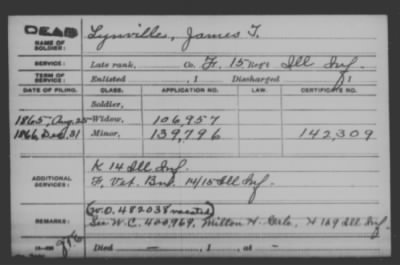 DEAD
NAME OF SOLDIER: Lynville, James T.
SERVICE: Late rank, Co. F, 15 Reg't Ill Inf.
TERM OF SERVICE: Enlisted , 1 Discharged , 1
DATE OF FILING. CLASS. APPLICATION NO. LAW. CERTIFICATE NO.
Soldier,
1865, Aug. 25 Widow, 106,957
1866, Dec. 31 Minor, 139,796 142,309
ADDITIONAL SERVICES: K 14 Ill Inf.
F, Vet. Bn. 14/15 Ill Inf.
REMARKS: (W.O. 482038 vacated)
See W.C. 400,969, Milton H. H 129 Ill Inf.
Died — , 1 , at -